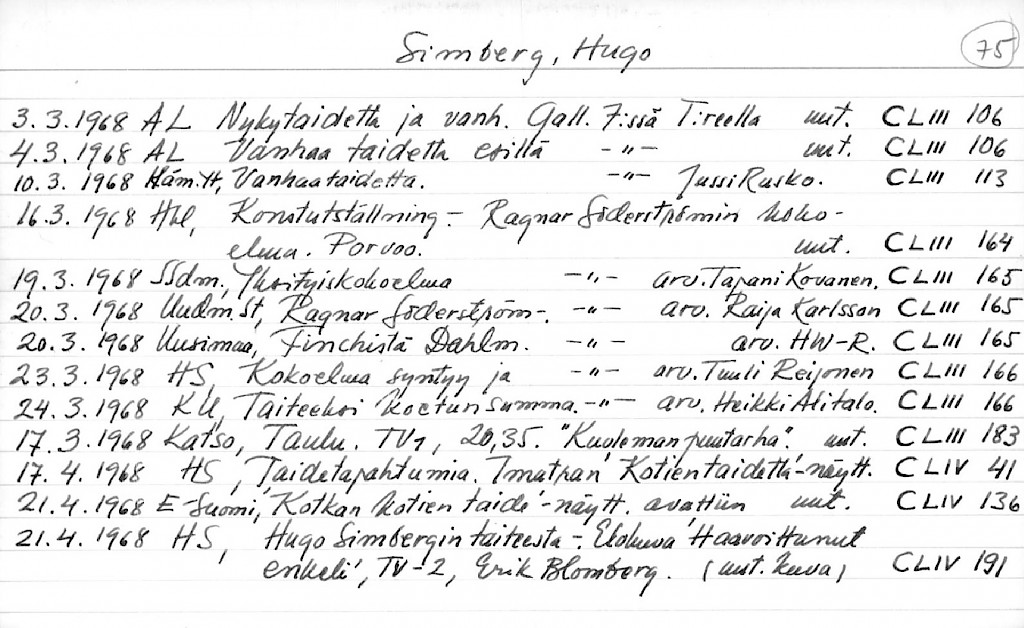 Simberg, Hugo 75
3.3.1968 AL Nykytaidetta ja vanh. Gall. 7:ssä T:reella uut. CLIII 106
4.3.1968 AL Vanhaa taidetta esillä -"- uut. CLIII 106
10.3.1968 Häm:tt, Vanhaa taidetta. -"- Jussi Rusko. CLIII 113
16.3.1968 Hbl, Konstutställning - Ragnar Söderströmin koko-
elma. Porvoo. uut. CLIII 164
19.3.1968 SSdm., Yksityiskokoelma -"- arv. Tapani Kovanen. CLIII 165
20.3.1968 Uudm.St, Ragnar Söderström-. -"- arv. Raija Karlsson CLIII 165
20.3.1968 Uusimaa, Finchistä Dahlm. -"- arv. HW-R. CLIII 165
23.3.1968 HS, Kokoelma syntyy ja -"- arv. Tuuli Reijonen CLIII 166
24.3.1968 KU, Taiteeksi koetun summa. -"- arv. Heikki Alitalo. CLIII 166
17.3.1968 Katso, Taulu. TV1, 20,35. "Kuoleman puutarha". uut. CLIII 183
17.4.1968 HS, Taidetapahtumia. Imatran 'Kotien taidetta'-näytt. CLIV 41
21.4.1968 E-Suomi, 'Kotkan kotien taide'-näytt. avattiin uut. CLIV 136
21.4.1968 HS, Hugo Simbergin taiteesta - Elokuva 'Haavoittunut
enkeli', TV-2, Erik Blomberg. (uut. kuva) CLIV 191